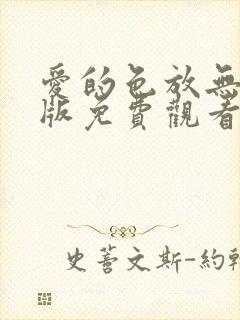 愛的色放無
版免費觀看
史蒈文斯-約翰